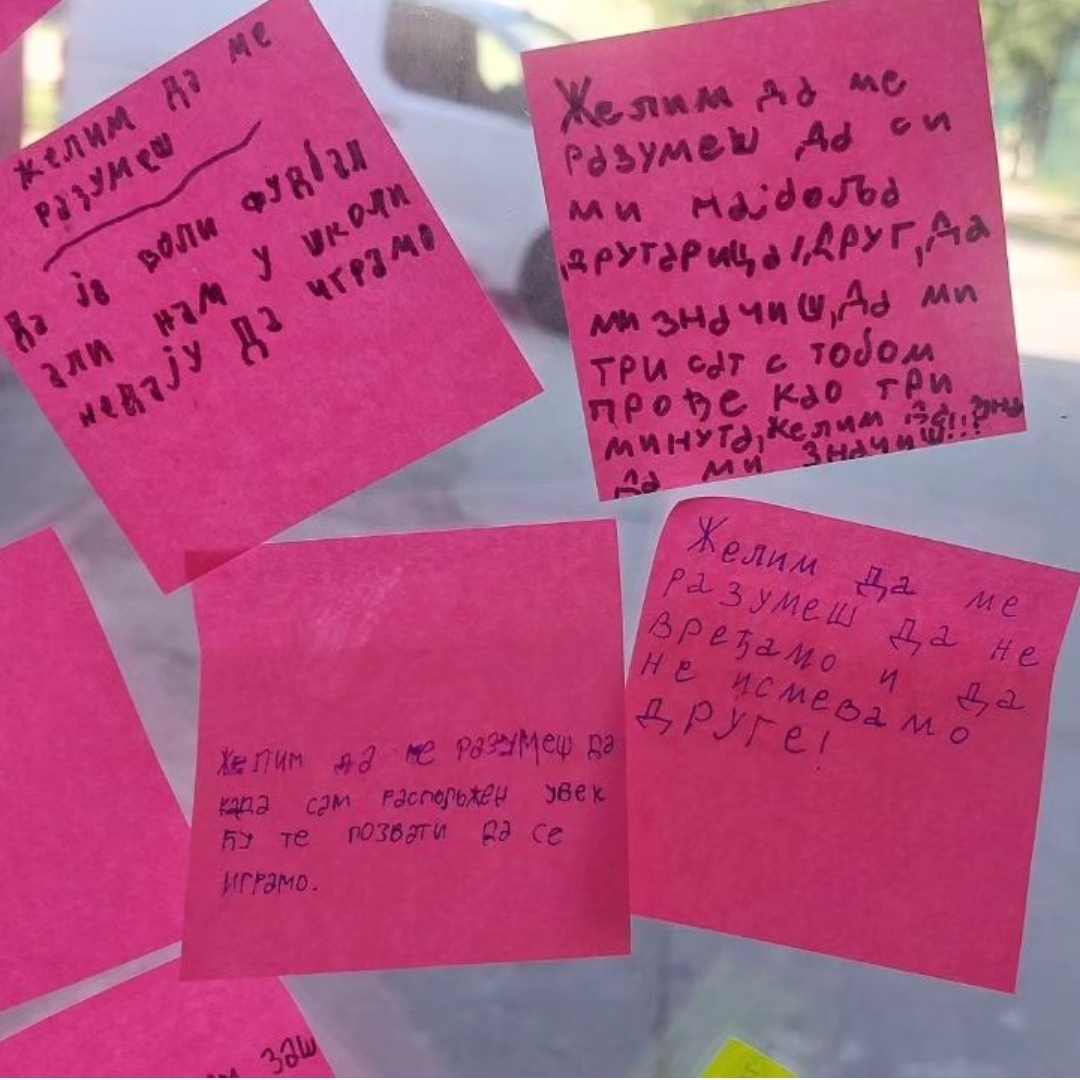 желим да ме
разумеш
да ја воли фудбал
али нам у школи
недају да играмо
Желим да ме
разумеш да си
ми најбоља
другарица/друг, да
ми значиш, да ми
три сат с тобом
прође као три
минута, желим да зна
да ми значиш!!!
Желим да ме разумеш да
када сам расположен увек
ћу те позвати да се
играмо.
Желим да ме
разумеш да не
вређамо и да
не исмевамо
друге!
заш